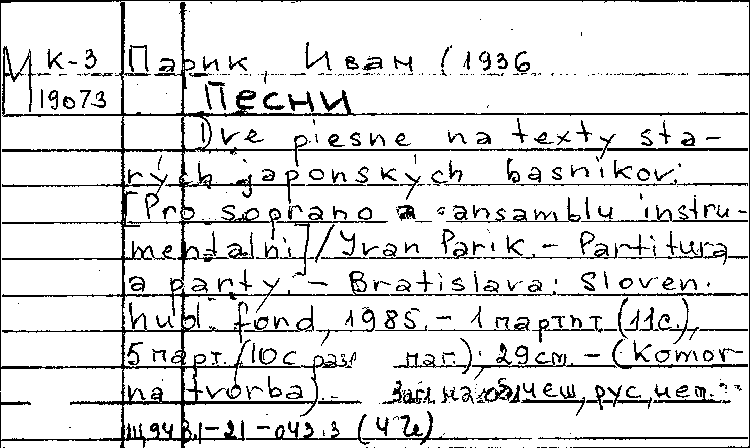 М К-3 Парик, Иван (1936
19073 Песни
Dve piesne na texty sta-
rých japonských basnikov:
[Pro soprano a ansamblu instru-
mentalni] / Yvan Parik. - Partitura
a party. - Bratislava: Sloven.
hud. fond, 1985. - 1 партит. (11с.),
5 парт. (10с разд паг.); 29см. - (Komor-
na tvorba). - Загл. на обл. чеш, рус, нем.
Щ943.1-21-043.3 (4Че)